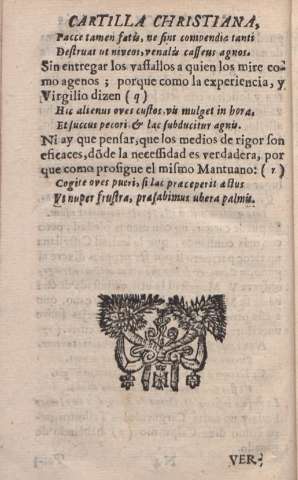 CARTILLA CHRISTIANA,
Pacce tamen fatis, ne sint convendia tanti
Destruat ut niveos, venalis casseus agnos.
Sin entregar los vassallos a quien los mire co-
mo agenos ; porque como la experiencia, y
Virgilio dizen ( q )
Hic alienus oves custos, vis mulget in hora,
Et succus pecori & lac subducitur agnis.
Ni ay que pensar, que los medios de rigor son
eficaces, dõde la necessidad es verdadera, por
que como prosigue el mismo Mantuano: ( r )
Cogite oves pueri, si lac præceperit æstus
Vt nuper frustra, præsabimus ubera palmis.
VER-